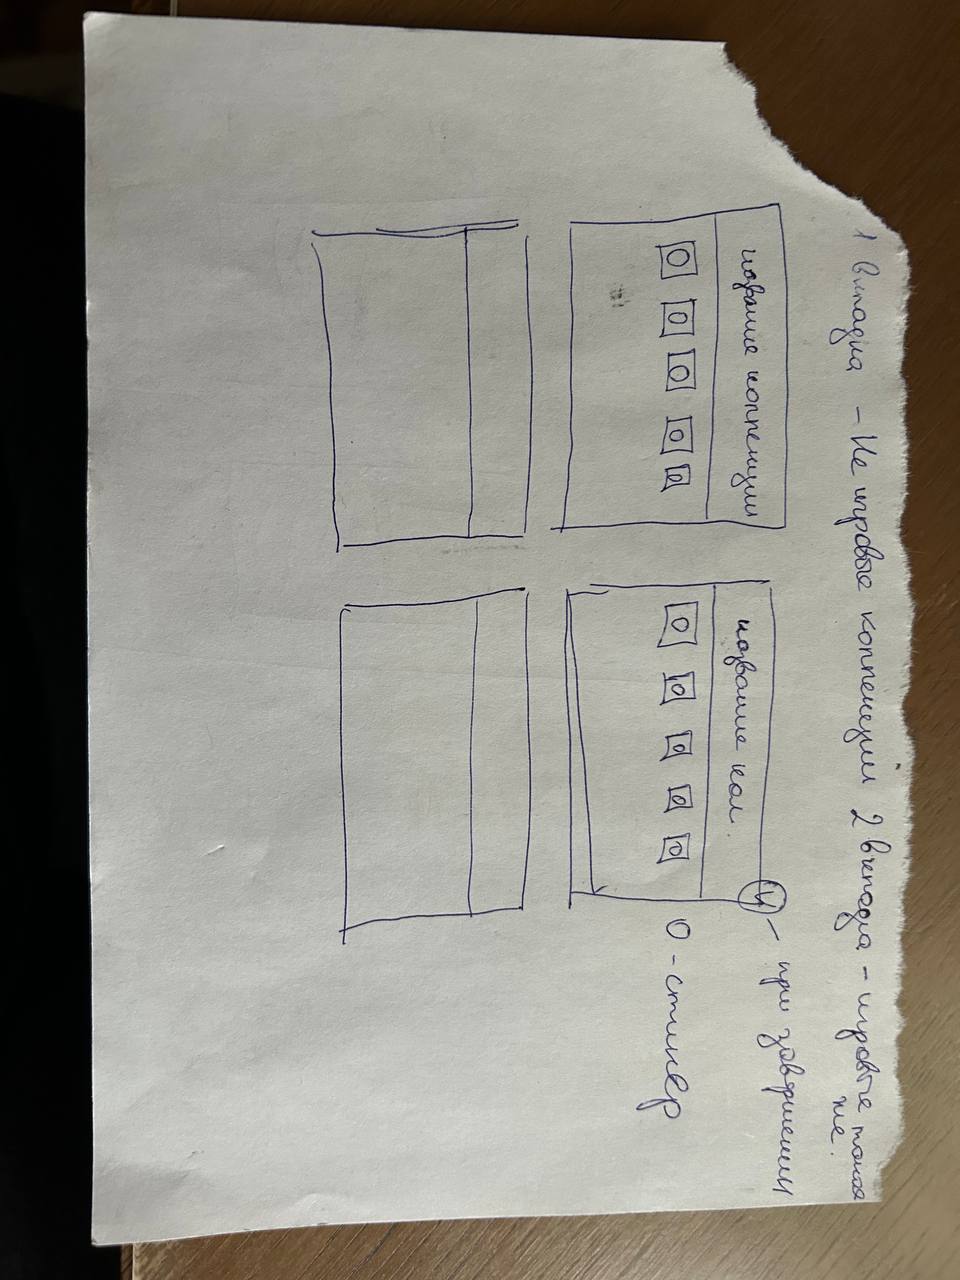 1 вкладка - Не игровые коллекции 2 вкладка - игровые такая
же.
название коллекции
название кол.
при завершении
0 - стикер